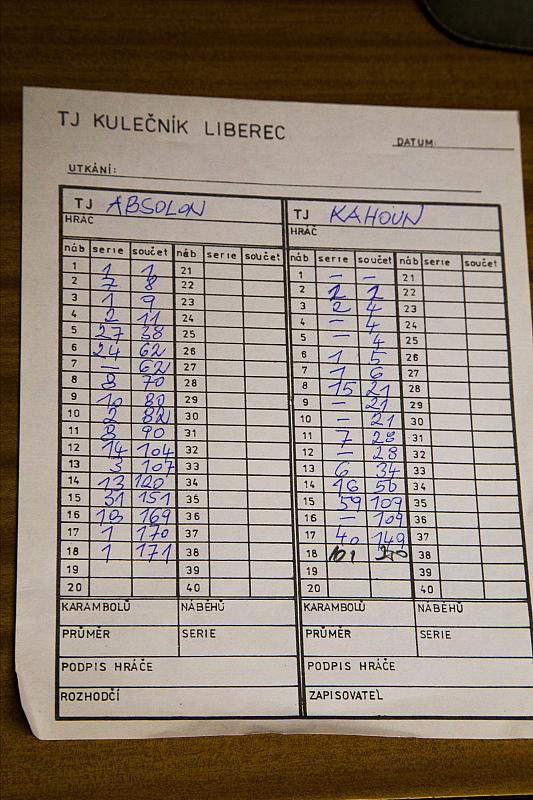 TJ KULEČNÍK LIBEREC
DATUM:
UTKÁNÍ:
TJ ABSOLON TJ KAHOUN
HRÁČ HRÁČ
náb serie součet náb serie součet náb serie součet náb serie součet
1 1 1 21 1 – – 21
2 7 8 22 2 2 2 22
3 1 9 23 3 2 4 23
4 2 11 24 4 – 4 24
5 27 38 25 5 – 4 25
6 24 62 26 6 1 5 26
7 – 62 27 7 1 6 27
8 8 70 28 8 15 21 28
9 10 80 29 9 – 21 29
10 2 82 30 10 – 21 30
11 8 90 31 11 7 28 31
12 14 104 32 12 – 28 32
13 3 107 33 13 6 34 33
14 13 120 34 14 16 50 34
15 31 151 35 15 59 109 35
16 18 169 36 16 – 109 36
17 1 170 37 17 40 149 37
18 1 171 38 18 101 38
19 39 19 39
20 40 20 40
KARAMBOLŮ NÁBĚHŮ KARAMBOLŮ NÁBĚHŮ
PRŮMĚR SERIE PRŮMĚR SERIE
PODPIS HRÁČE PODPIS HRÁČE
ROZHODČÍ ZAPISOVATEL